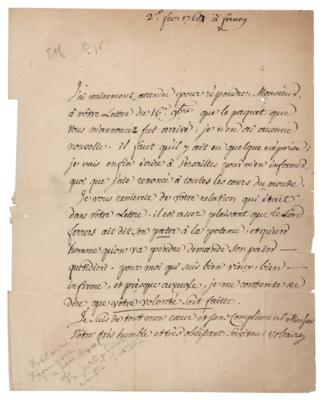 2e fevr 1761 à ferney
J'ai vainement attendu pour répondre, Monsieur
à vôtre Lettre du 16e xbre que le paquet que
vous m'annoncez fut arrivé, je n'en ai aucune
nouvelle. il faut qu'il y ait eu quelque méprise;
je vais enfin écrire à Versailles pour m'en informer
quoi que j'aie renoncé à toutes les cours du monde.
Je vous remercie de vôtre relation qui était
dans vôtre Lettre. il est assez plaisant que le Lord
ferrers ait dit son pater à la potence, et qu'un
homme qu'on va pendre demande son pain
quotidien. pour moi qui suis bien vieux, bien
infirme, et presque aveugle, je me contente de
dire, que vôtre volonté soit faitte.
Je suis de tout mon cœur et sans Compliment Monsieur
Vôtre très humble et très obéissant serviteur Voltaire